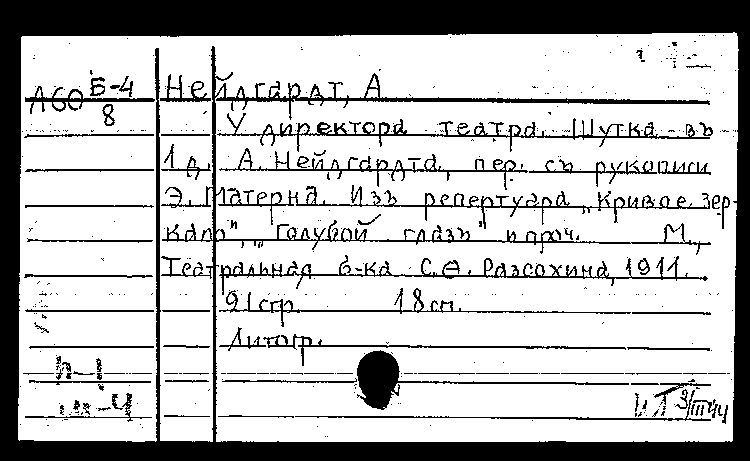 А60 Б-4/8
Нейдгардт, А
У директора театра. Шутка въ
1 д. А. Нейдгардта, пер. съ рукописи
Э. Матерна. Изъ репертуара „Кривое зер-
кало", „Голубой глазъ" и проч. М.,
Театральная б-ка С.Ѳ. Разсохина, 1911.
21 стр. 18 см.
Литогр.
п-1
м-4
3/III 44